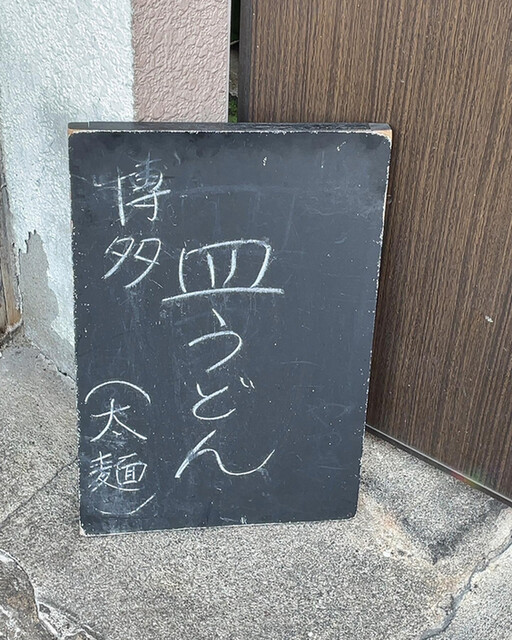 皿うどん
博多
（太麺）